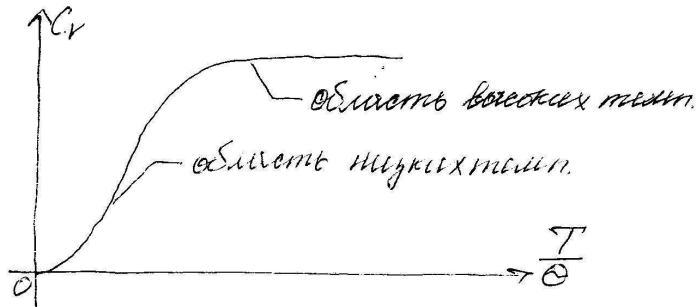 Cᵥ
область высоких темп.
область низких темп.
T
Θ
0